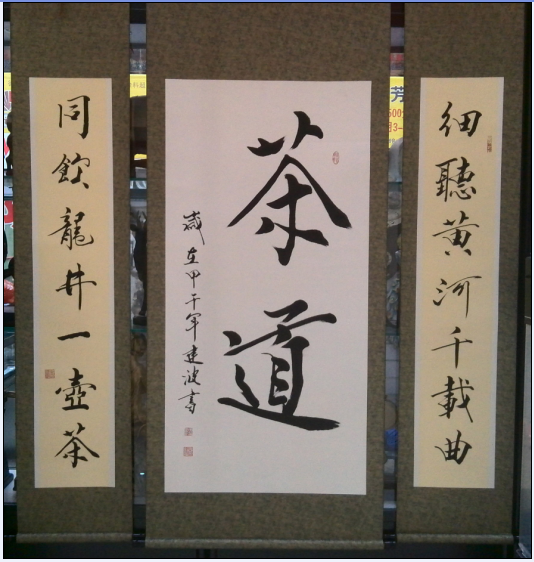 細聽黄河千載曲
茶道
歲在甲午年建波書
同飲龍井一壺茶
芳